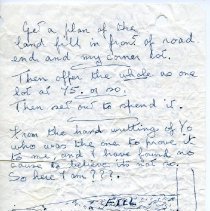 Get a plan of the
land fill in front of road
end and my corner lot.
Then offer the whole as one
lot at 75. or so.
Then set out to spend it.
From the hand writing of Yo
who was the one to prove it
to me, and I have found no
cause to believe its not so.
So here I am???.
FILL